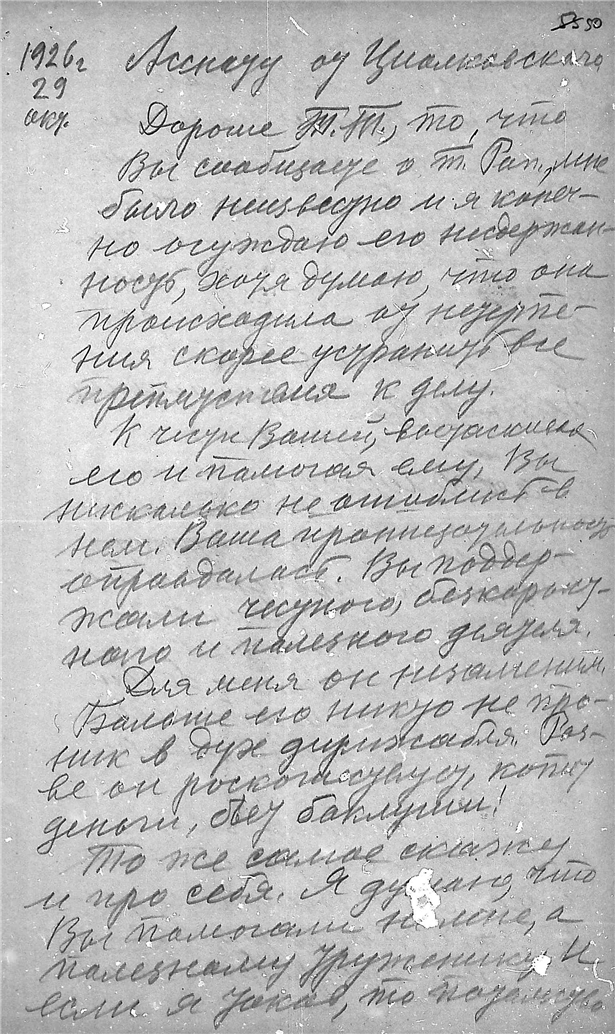 50
1926 г Асснату от Циолковского
29
окт.
Дорогие Т.Т., то, что
Вы сообщаете о т. Рап., мне
было неизвестно и я конеч-
но осуждаю его несдержан-
ность, хотя думаю, что она
происходила от нетерпе-
ния скорее устранить все
препятствия к делу.
К чести Вашей, вытаскивая
его и помогая ему, Вы
нисколько не ошиблись в
нем. Ваша проницательность
оправдалась. Вы поддер-
жали честного, бескорыст-
ного и полезного деятеля.
Для меня он незаменим.
Больше его никто не про-
ник в дух дирижабля. Раз-
ве он роскошествует, копит
деньги, бьет баклуши!
То же самое скажу
и про себя. Я думаю, что
Вы помогали не мне, а
полезному труженику. И
если я таков, то пожалуйс